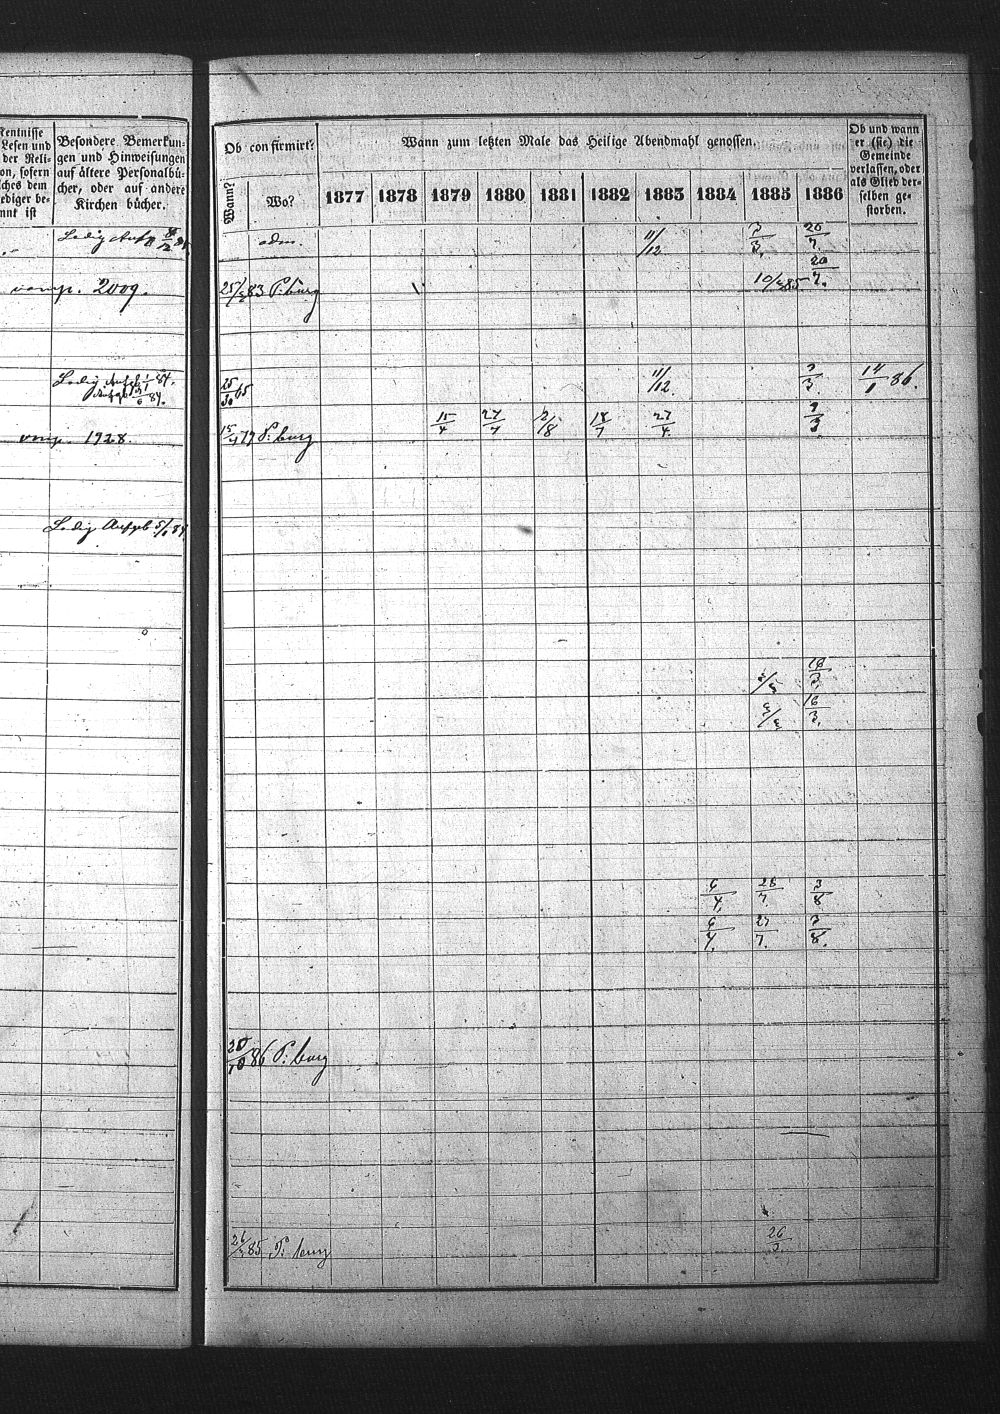 kentnisse
Lesen und
der Reli-
on, sofern
lches dem
ediger be-
nnt ist
Besondere Bemerkun-
gen und Hinweisungen
auf ältere Personalbü-
cher, oder auf andere
Kirchen bücher.
Ledig Aufg.
vomp. 2009.
Ledig Aufgb 1/ 84.
Aufgb 84.
vomp. 1928.
Ledig Aufgb 5/ 84
Ob confirmirt?
Wann zum letzten Male das Heilige Abendmahl genossen.
Ob und wann
er (sie) die
Gemeinde
verlassen, oder
als Glied der-
selben ge-
storben.
Wann? Wo? 1877 1878 1879 1880 1881 1882 1883 1884 1885 1886
adm. 11/12 3/3. 20/7.
25/ 83 P: burg 10/ 85 20/7.
25/ 65 11/12. 3/3. 14/1 86.
15/4 79 P: burg 15/4 27/4 2/8 18/7 27/4. 3/3.
16/3.
16/3.
6/4. 28/7. 3/8.
6/4. 27/7. 3/8.
20/10 86 P: burg
26/ 85 P: burg 26/5.